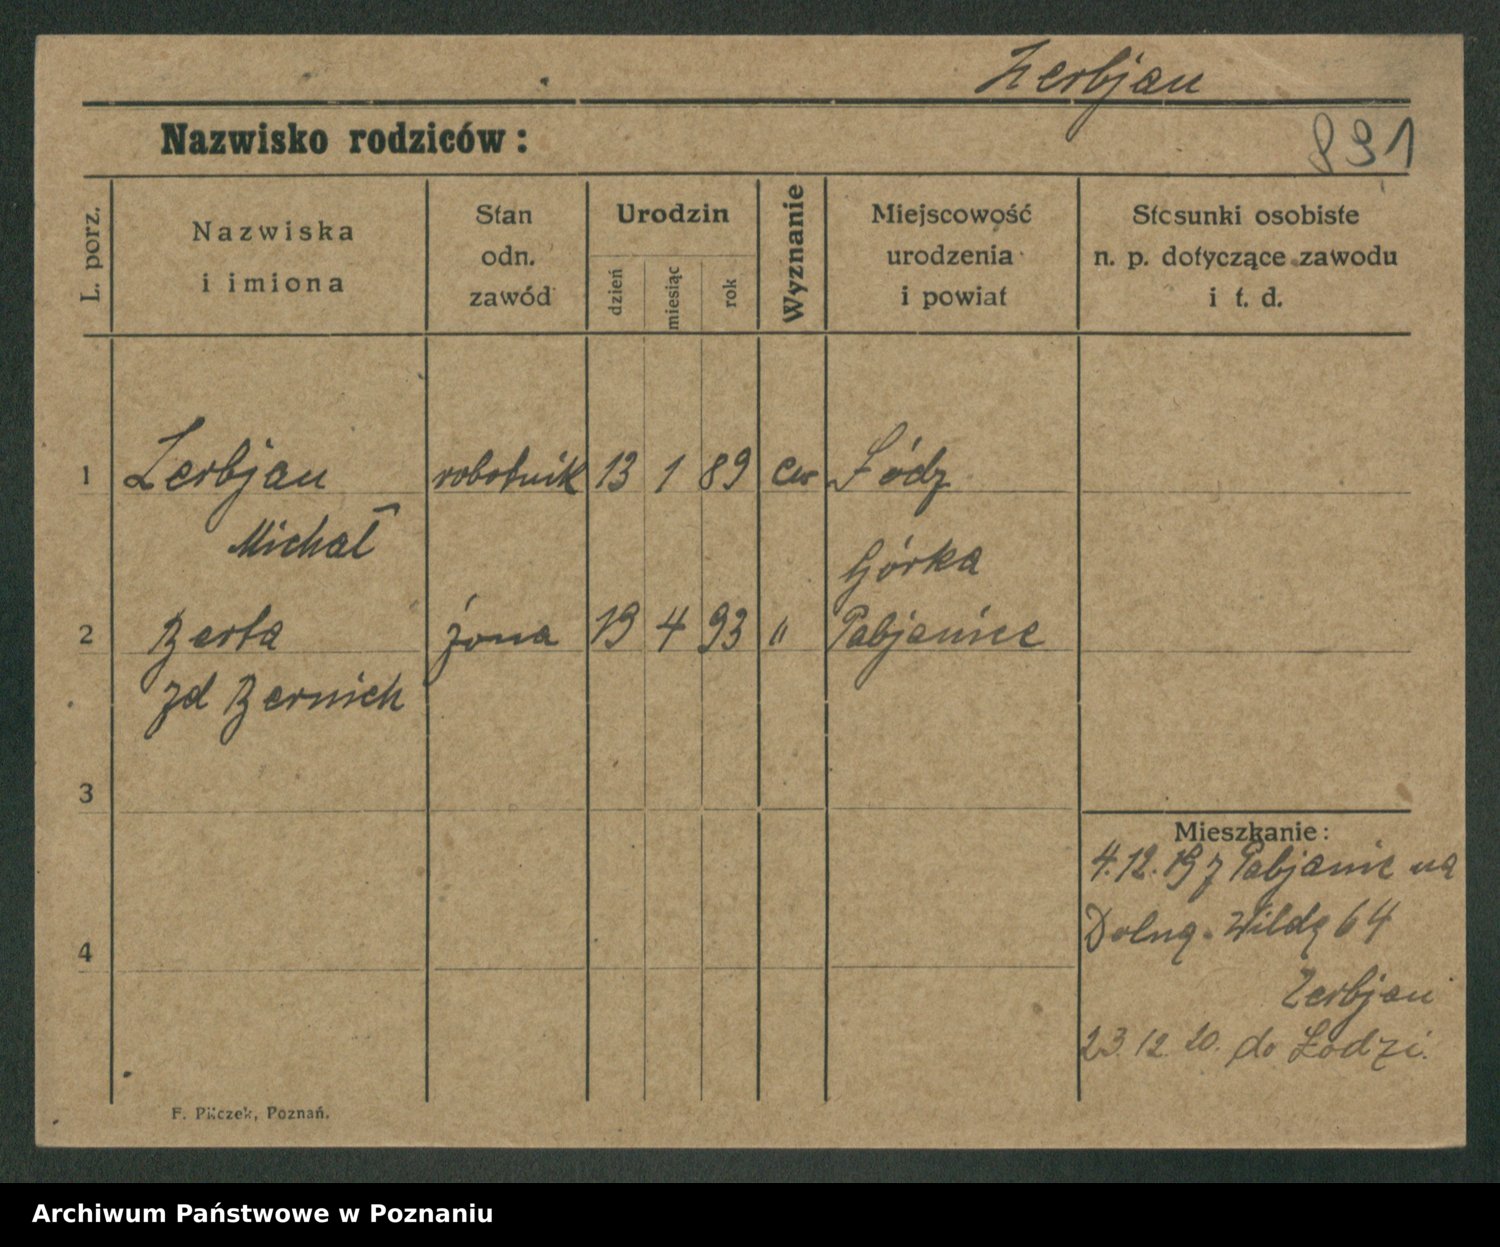 Zerbjan
Nazwisko rodziców:
891
L. porz.
Nazwiska
i imiona
Stan
odn.
zawód
Urodzin
dzień
miesiąc
rok
Wyznanie
Miejscowość
urodzenia
i powiat
Stosunki osobiste
n. p. dotyczące zawodu
i t. d.
1 Zerbjan robotnik 13 1 89 ew Łódz
Michał
Górka
2 Berta żona 19 4 93 " Pabjanice
zd Bernich
3
Mieszkanie:
4.12.19 z Pabjanic na
Dolną-Wildę 64
4
Zerbjan
23.12 20. do Łodzi.
F. Pilczek, Poznań.
Archiwum Państwowe w Poznaniu